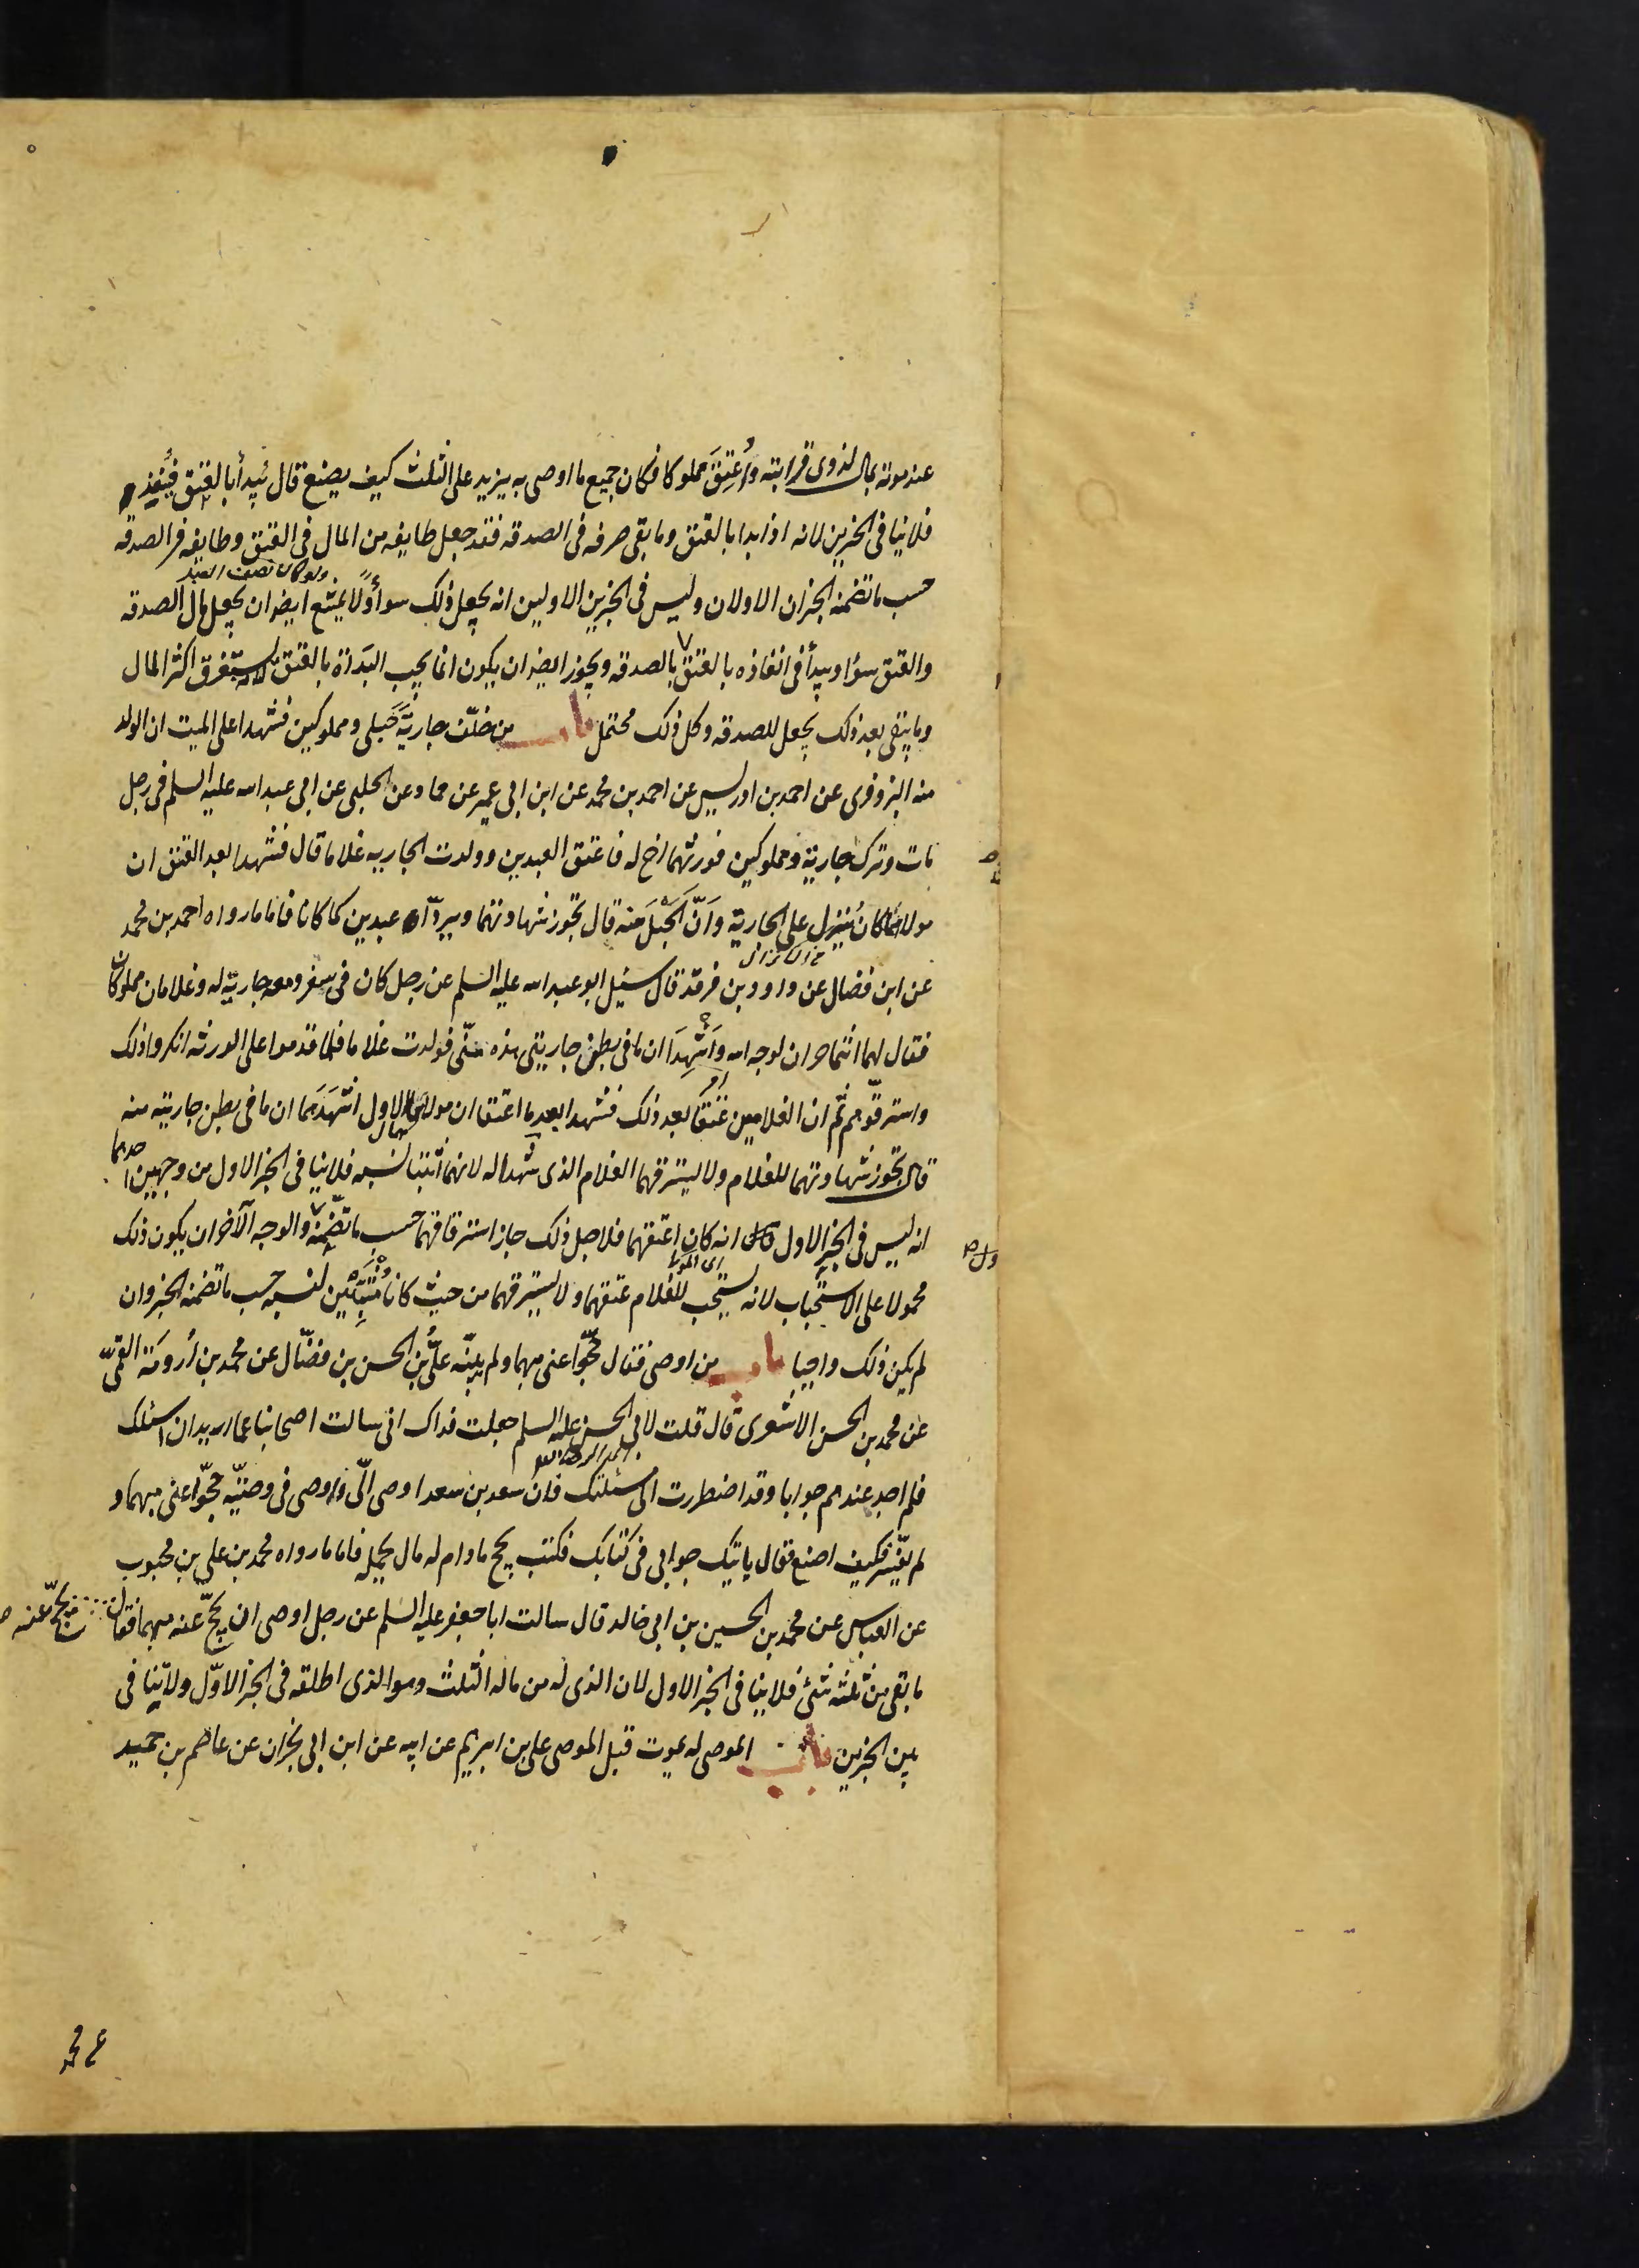 عند موته بمال لذوى قرابته واُعتِقَ مملوكا فكان جميع ما اوصى به يزيد على الثلث كيف يصنع قال يُبدأ بالعتق فيُنفذ
فلاينافى الخبرين لانه اذا بدا بالعتق وما بقى صرفه فى الصدقه فقد جعل طايفه من المال فى العتق وطايفه فى الصدقه
حسب ما تضمنه الخبران الاولان وليس فى الخبرين الاولين انه يجعل ذلك سوأ اولا يمتنع ايضا ان يجعل مال الصدقه
والعتق سوا ويبدأ فى انفاذه بالعتق بالصدقه ويجوز ايضا ان يكون انما يجب البدَاة بالعتق لاستغرق اكثر المال
وما يبقى بعد ذلك يجعل للصدقه وكل ذلك محتمل باب من خلّف جاريةً حُبلى ومملوكين فشهدا على الميت ان الولد
منه البزوفرى عن احمد بن ادريس عن احمد بن محمد عن ابن ابى عمير عن حماد عن الحلبى عن ابى عبد الله عليه السلم فى رجل
مات وترك جارية ومملوكين فورثهما اخ له فاعتق العبدين وولدت الجاريه غلاما قال فشهدا بعد العتق ان
مولاهما كان يُنزِل على الجارية وانّ الحَبَلَ منه قال تجوز شهادتهما ويردّان عبدين كما كانا فاما ما رواه احمد بن محمد
عن ابن فضال عن داود بن فرقد قال سئل ابو عبد الله عليه السلم عن رجل كان فى سفر ومعه جارية له وغلامان مملوكان
فقال لهما انتما حران لوجه الله واَشهِدَا ان ما فى بطن جاريتى هذه منّى فولدت غلاما فلما قدموا على الورثه انكروا ذلك
واسترقّوهم ثم ان الغلامين عُتقا بعد ذلك فشهدا بعد ما اعتقا ان مولاهما الاول اشهَدَهما ان ما فى بطن جاريته منه
قال تجوز شهادتهما للغلام ولا يسترقهما الغلام الذى شهدا له لانهما اثبتا نسبه فلاينافى الخبر الاول من وجهين احدهما
انه ليس فى الخبر الاول انه كان اعتقهما فلاجل ذلك جاز استرقاقهما حسب ما تضمّنه والوجه الآخر ان يكون ذلك
محمولا على الاستحباب لانه يستحب للغلام عتقهما ولا يسترقهما من حيث كانا مُثبِتَين لنسبه حسب ما تضمنه الخبر وان
لم يكن ذلك واجبا باب من اوصى فقال حُجّوا عنى مبهما ولم يبيّنه علىّ بن الحسن بن فضّال عن محمد بن اُرومَة القمّىّ
عن محمد بن الحسن الاشعرى قال قلت لابى الحسن عليه السلم جعلت فداك انى سالت اصحابنا عما اريد ان اسئلك
فلم اجد عندهم جوابا وقد اضطررت الى مسئلتك فان سعد بن سعد اوصى الىّ واوصى فى وصيّته حجّوا عنى مبهما و
لم يفسّر فكيف اصنع فقال ياتيك جوابى فى كتابك فكتب يحج ما دام له مال يحمله فاما ما رواه محمد بن على بن محبوب
عن العباس عن محمد بن الحسين بن ابى خالد قال سالت ابا جعفر عليه السلم عن رجل اوصى ان يحجّ عنه مبهما فقال يحجّ عنه
ما بقى من ثلثه شئ فلاينافى الخبر الاول لان الذى له من ماله الثلث وهو الذى اطلقه فى الخبر الاوّل ولا تنافى
بين الخبرين باب الموصى له يموت قبل الموصى على بن ابرهيم عن ابيه عن ابن ابى نجران عن عاصم بن حميد